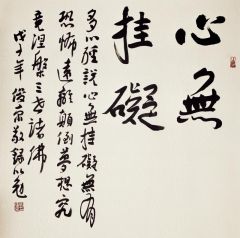 心無
挂礙
多心經說心無挂礙無有
恐怖遠離顛倒夢想究
竟涅槃三世諸佛
戊子年 敬錄以勉